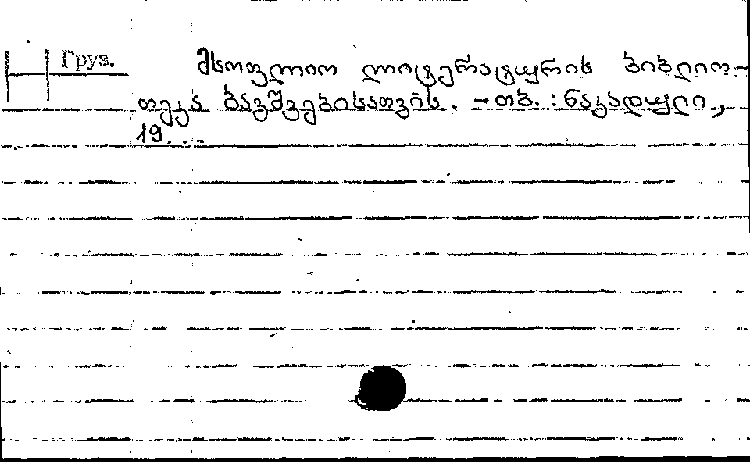 Груз.
მსოფლიო ლიტერატურის ბიბლიო-
თეკა ბავშვებისათვის. - თბ. : ნაკადული,
19...